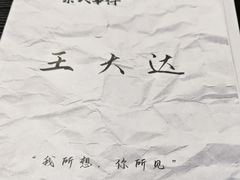 王大达
“我所想，你所见”